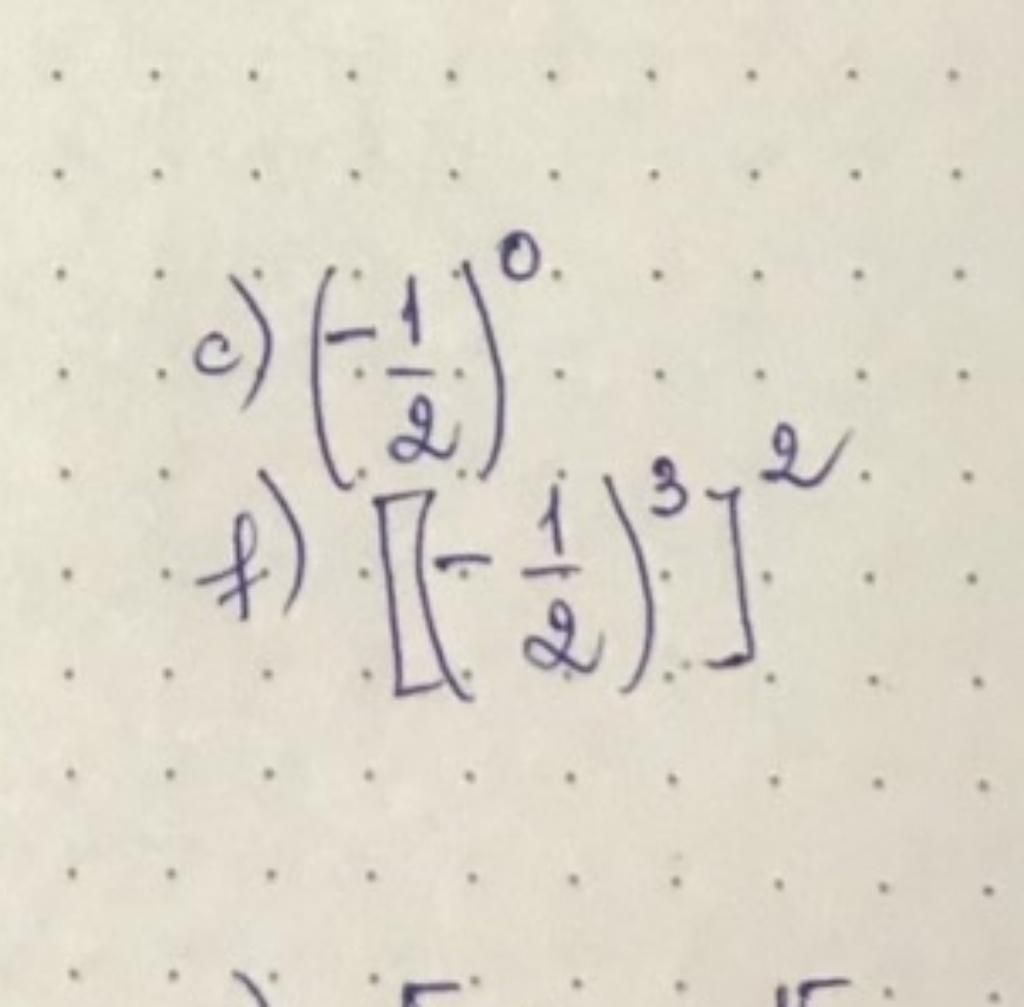 c) (-1/2)^0
f) [(-1/2)^3]^2